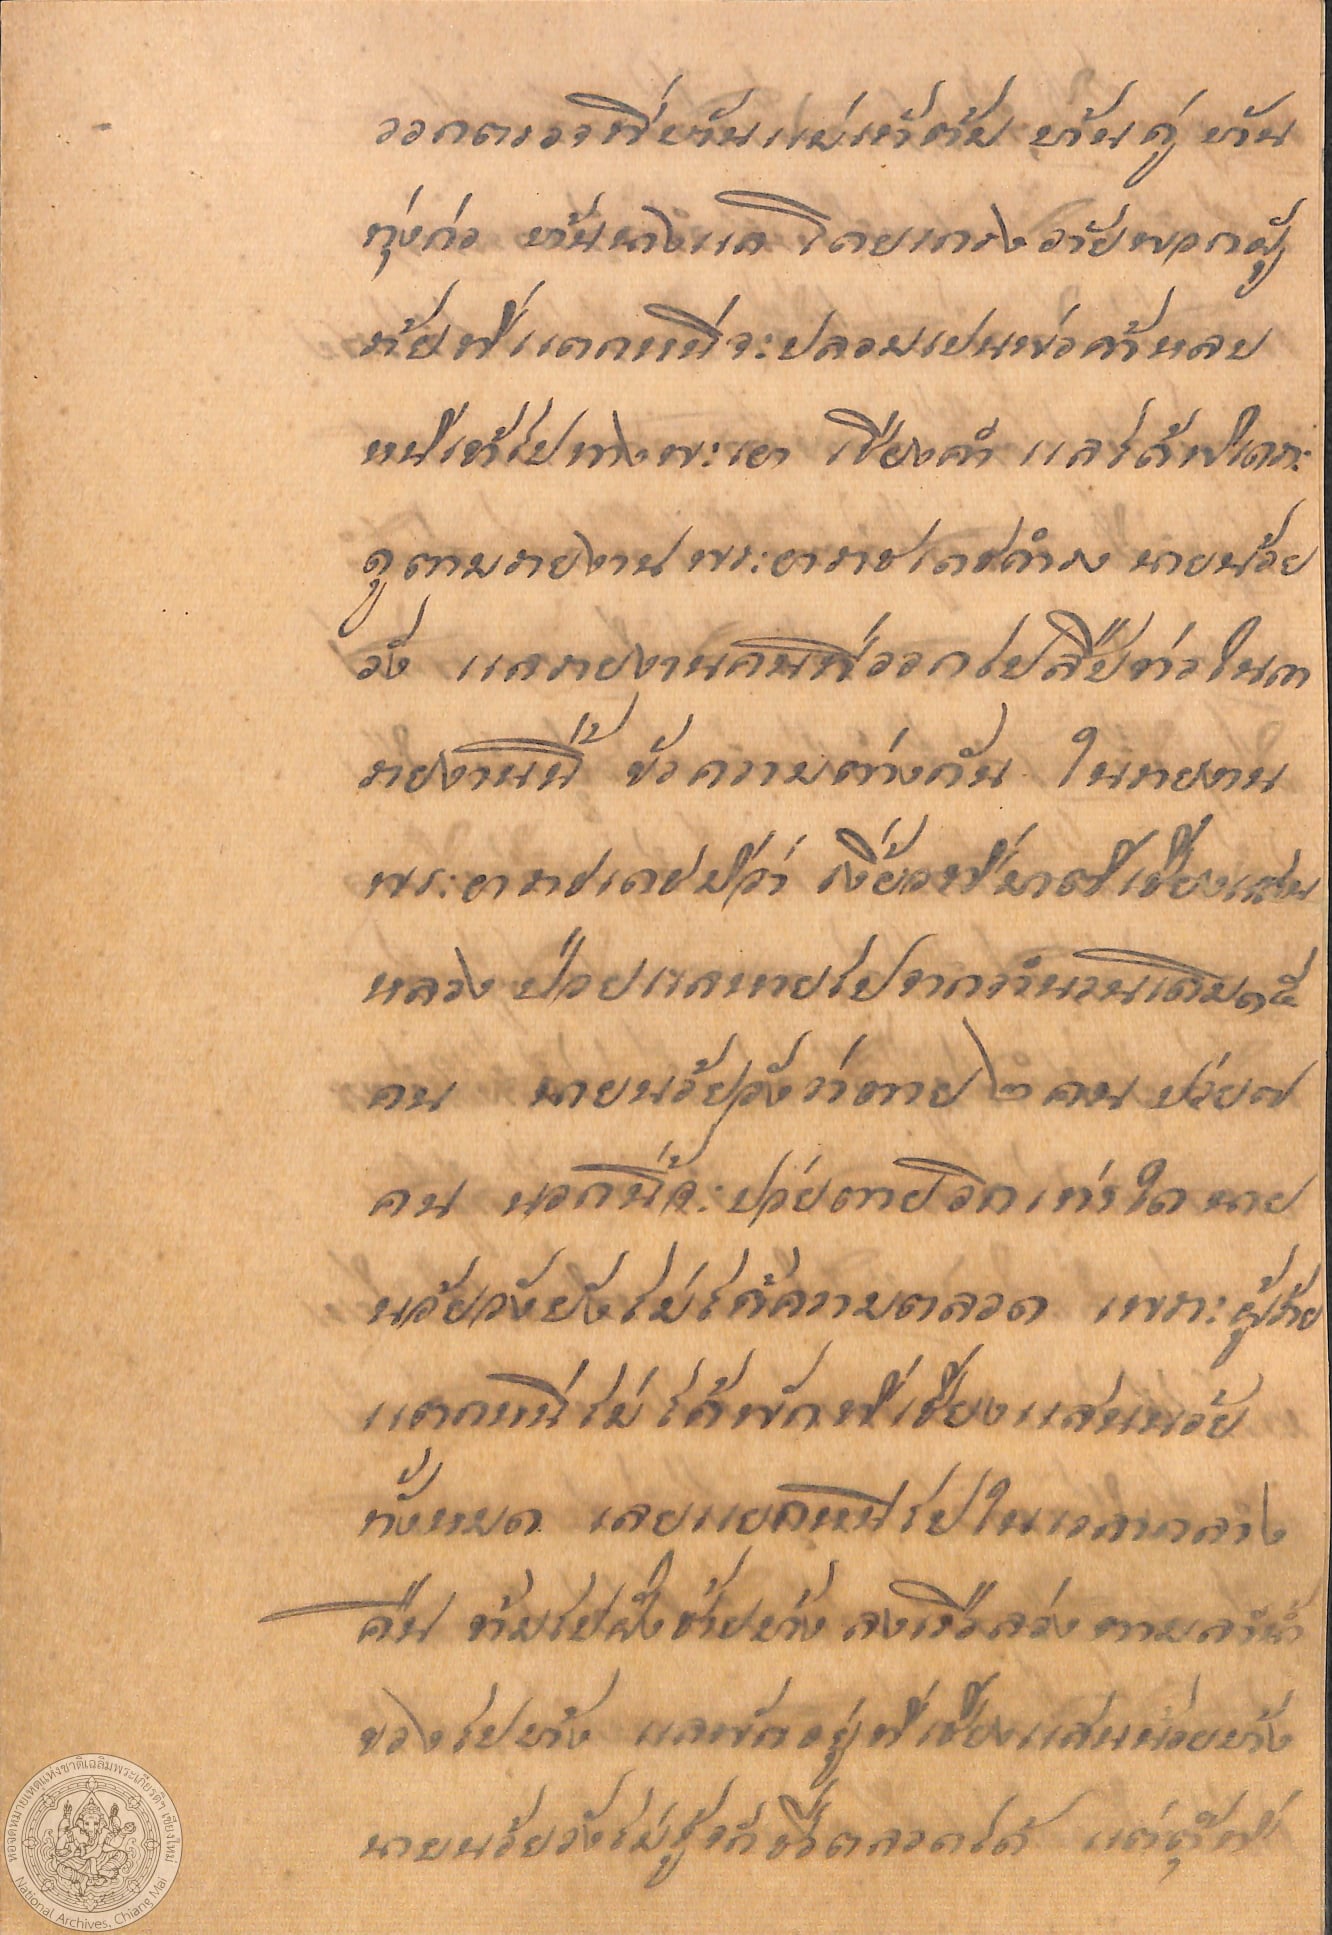 ออกตรวจที่บ้านแม่เท้าต้ม บ้านคู่ บ้าน
ทุ่งก่อ บ้านนางแล โดยเกรงว่าพวกผู้
ร้ายที่แตกหนีจะปลอมเปนพ่อค้าหลบ
หนีเข้าไปทางพะเยา เชียงคำ แลได้พิเคราะ
ดูตามรายงานพระยาราชเดชดำรง นายน้อย
วัง แลรายงานคนที่ออกไปสืบข่าวใน ๓
รายงานนี้ ข้อความต่างกัน ในรายงาน
พระยาราชเดชมีว่า เงี้ยวที่มาตีเชียงแสน
หลวง ป่วยแลหายไปจากจำนวนเดิม ๑๕
คน นายน้อยวังว่าตาย ๒ คน ป่วย ๗
คน นอกนี้จะป่วยตายอีกเท่าใด นาย
น้อยวังยังไม่ได้ความตลอด เพราะผู้ร้าย
แตกหนีไม่ได้พักที่เชียงแสนน้อย
ทั้งหมด เลยแยกหนีไปในเวลากลาง
คืน ข้ามไปฝั่งซ้ายบ้าง ลงเรือล่องตามลำน้ำ
ของไปบ้าง แลพักอยู่ที่เชียงแสนน้อยบ้าง
นายน้อยวังไม่รู้จักชื่อตลอดได้ แต่